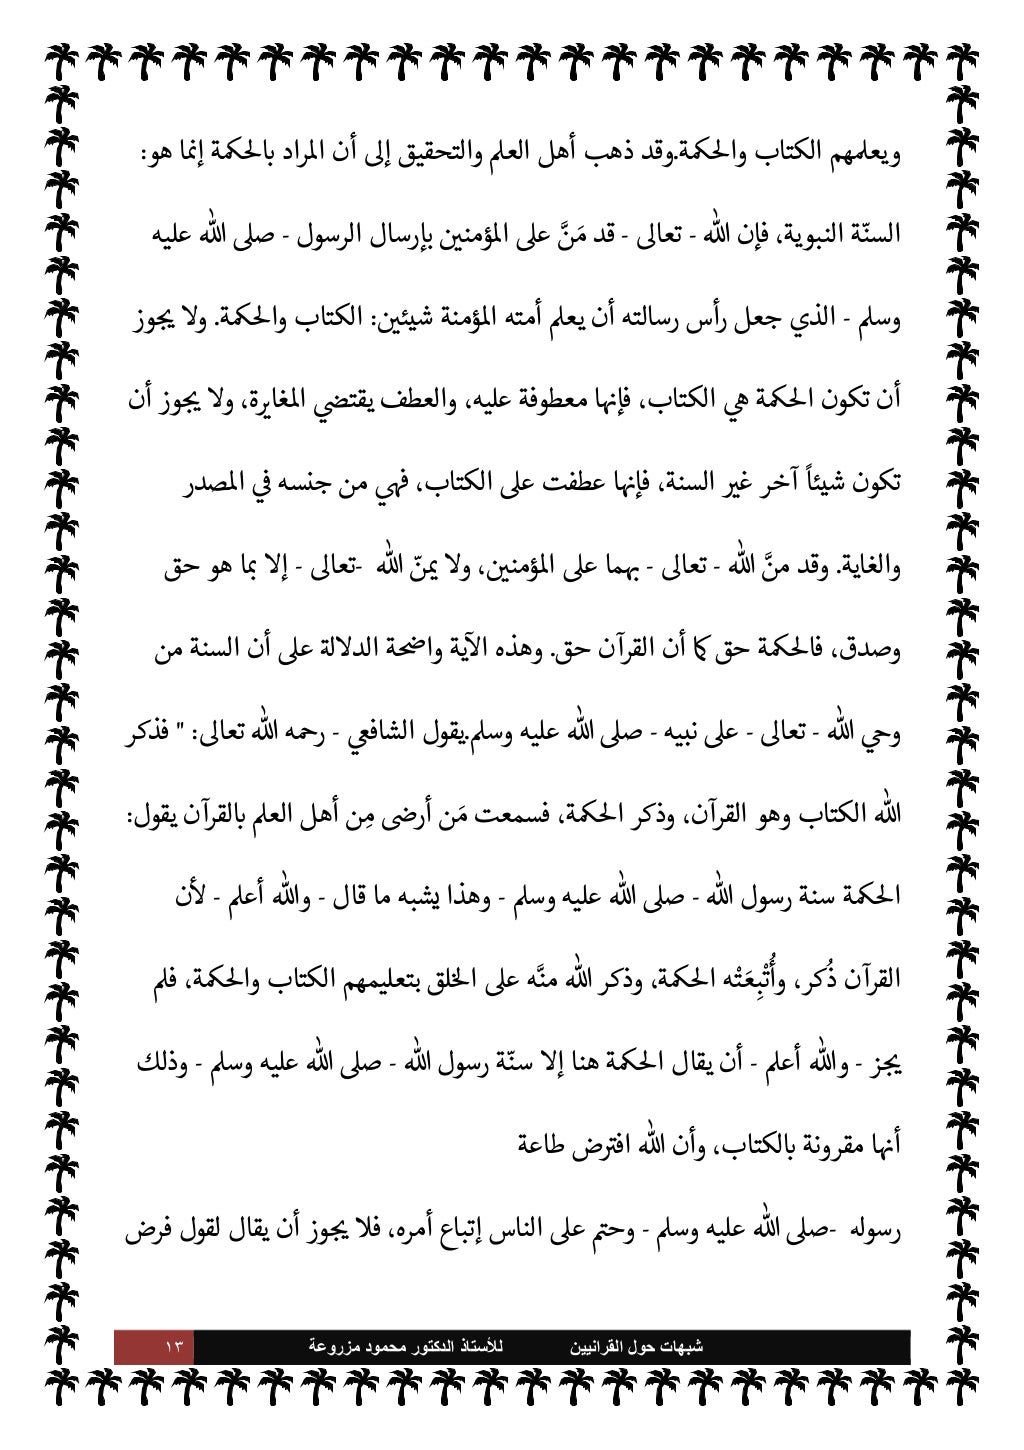 ويعلمهم الكتاب والحكمة.وقد ذهب أهل العلم والتحقيق إلى أن المراد بالحكمة إنما هو:
السنّة النبوية، فإن الله - تعالى - قد مَنَّ على المؤمنين بإرسال الرسول - صلى الله عليه
وسلم - الذي جعل رأس رسالته أن يعلم أمته المؤمنة شيئين: الكتاب والحكمة. ولا يجوز
أن تكون الحكمة هي الكتاب، فإنها معطوفة عليه، والعطف يقتضي المغايرة، ولا يجوز أن
تكون شيئاً آخر غير السنة، فإنها عطفت على الكتاب، فهي من جنسه في المصدر
والغاية. وقد منَّ الله - تعالى - بهما على المؤمنين، ولا يمنّ الله -تعالى - إلا بما هو حق
وصدق، فالحكمة حق كما أن القرآن حق. وهذه الآية واضحة الدلالة على أن السنة من
وحي الله - تعالى - على نبيه - صلى الله عليه وسلم.يقول الشافعي - رحمه الله تعالى: " فذكر
الله الكتاب وهو القرآن، وذكر الحكمة، فسمعت مَن أرضى مِن أهل العلم بالقرآن يقول:
الحكمة سنة رسول الله - صلى الله عليه وسلم - وهذا يشبه ما قال - والله أعلم - لأن
القرآن ذُكر، وأُتْبِعَتْه الحكمة، وذكر الله منَّه على الخلق بتعليمهم الكتاب والحكمة، فلم
يجز - والله أعلم - أن يقال الحكمة هنا إلا سنّة رسول الله - صلى الله عليه وسلم - وذلك
أنها مقرونة بالكتاب، وأن الله افترض طاعة
رسوله -صلى الله عليه وسلم - وحتم على الناس إتباع أمره، فلا يجوز أن يقال لقول فرض
شبهات حول القرانيين للأستاذ الدكتور محمود مزروعة ١٣